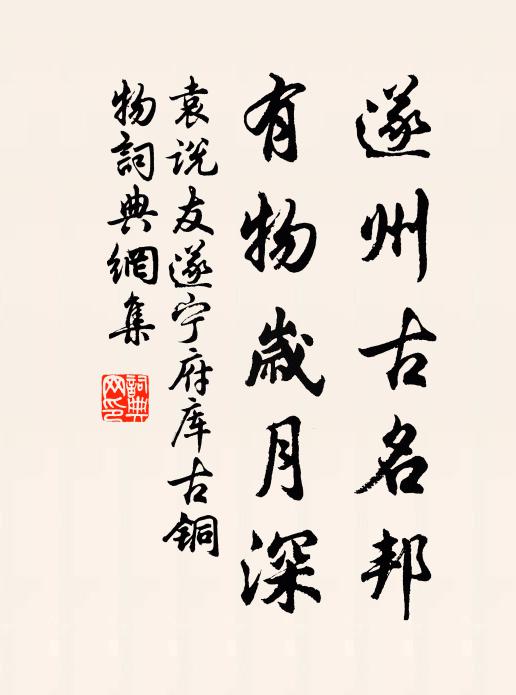 遂州古名邦
有物歲月深
袁说友遂宁府库古铜
物詞典網集
詞典
网印